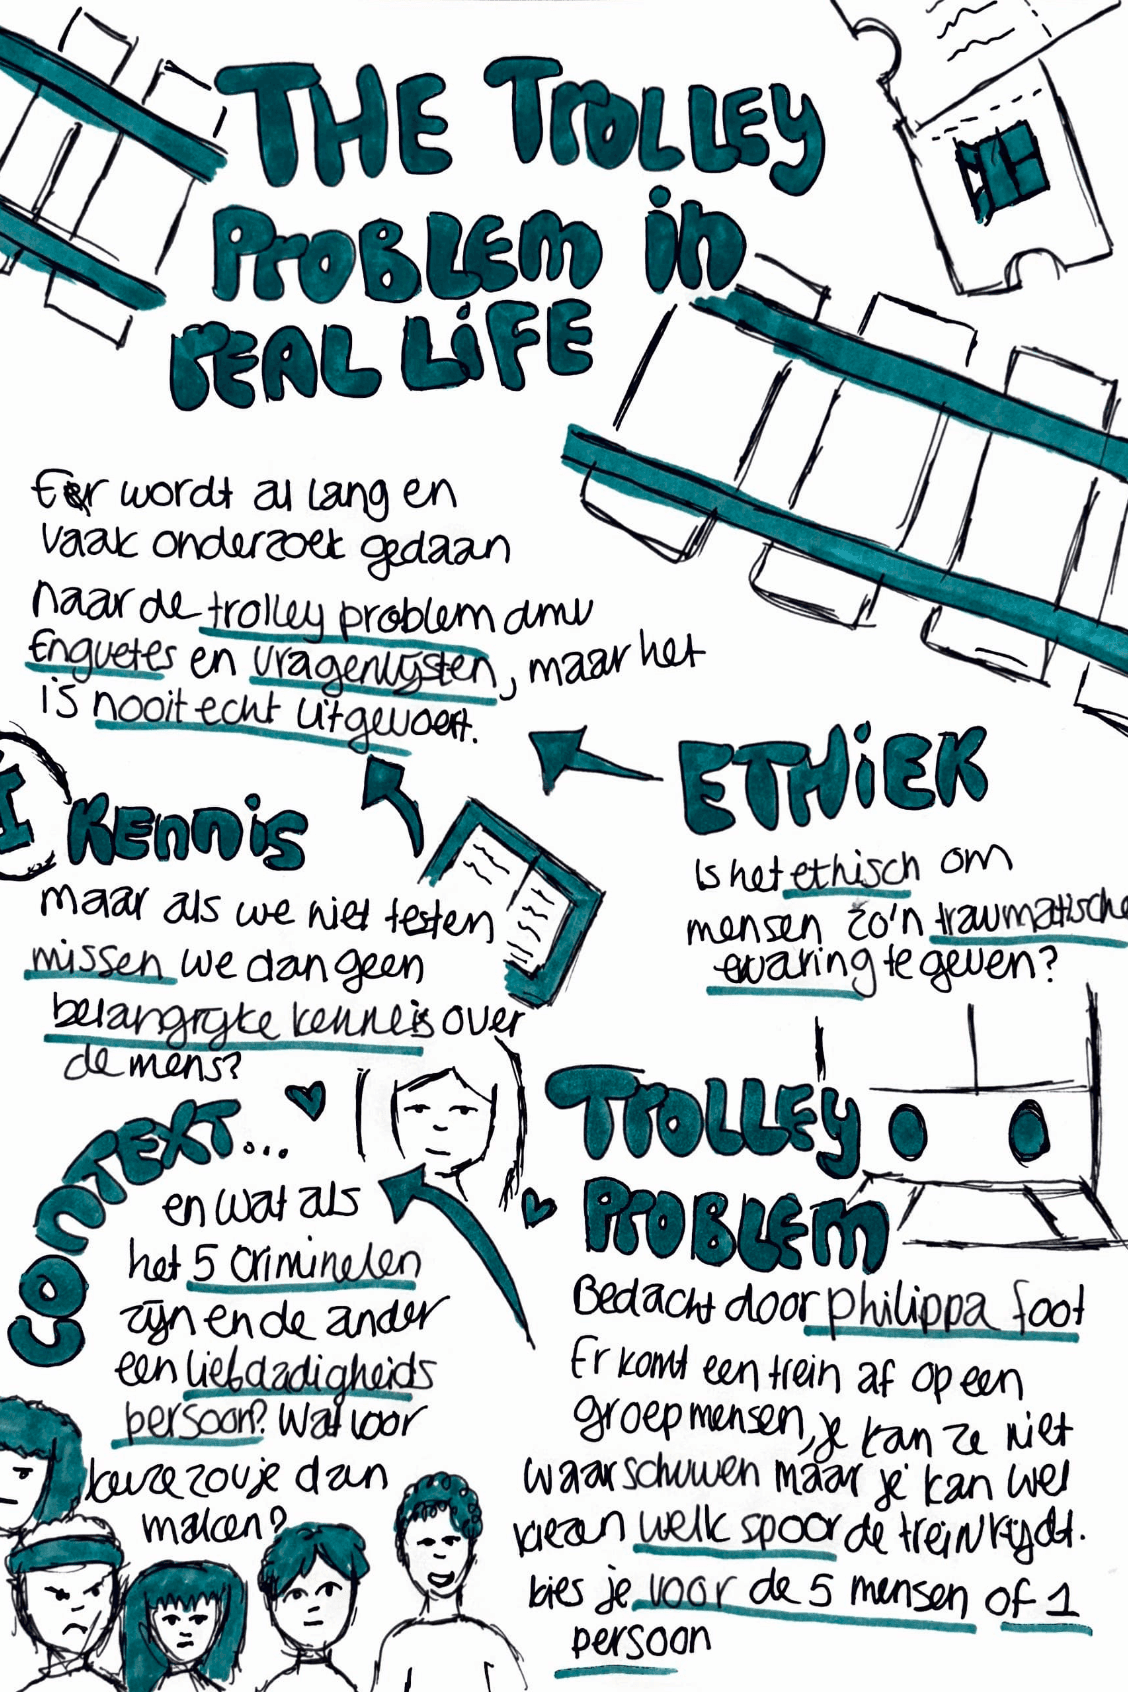 THE TROLLEY
PROBLEM in
REAL LiFE
Er wordt al lang en
vaak onderzoek gedaan
naar de trolley problem dmv
Enquetes en vragenlijsten, maar het
is nooit echt uitgevoert.
ETHiEK
Is het ethisch om
mensen zo'n traumatische
ervaring te geven?
KEnnis
maar als we niet testen
missen we dan geen
belangrijke kenneis over
de mens?
CONTEXT...
en wat als
het 5 criminelen
zijn en de ander
een liefdadigheids
persoon? Wat voor
keuze zou je dan
maken?
TROLLEY
PROBLEM
Bedacht door philippa foot
Er komt een trein af op een
groep mensen, je kan ze niet
waarschuwen maar je kan wel
kiezen welk spoor de trein rijdt.
kies je voor de 5 mensen of 1
persoon